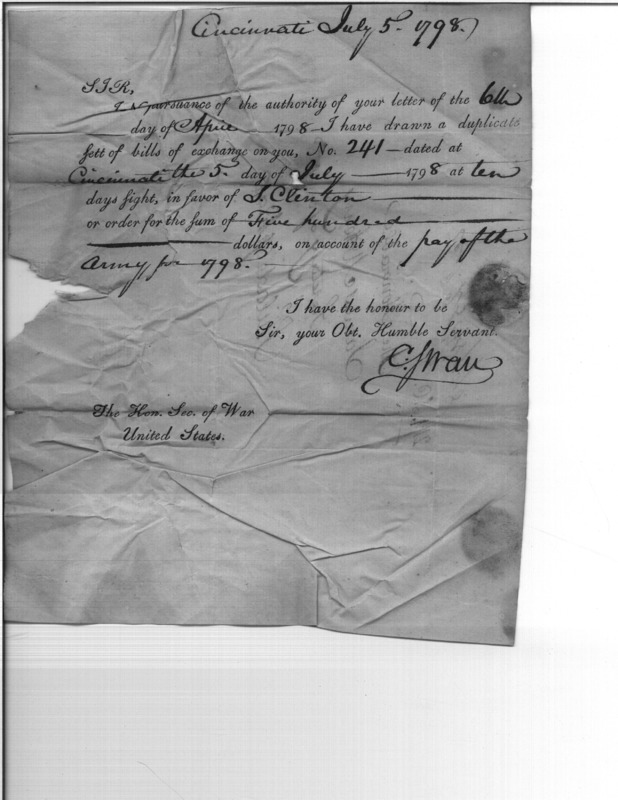 Cincinnati July 5. 1798.
SIR,
In pursuance of the authority of your letter of the 6th
day of April 1798 I have drawn a duplicate
sett of bills of exchange on you, No. 241 — dated at
Cincinnati the 5. day of July — 1798 at ten
days sight, in favor of J. Clinton —
or order for the sum of Five hundred —
— dollars, on account of the pay of the
Army for 1798.
I have the honour to be
Sir, your Obt. Humble Servant.
C. Swan
The Hon. Sec. of War
United States.